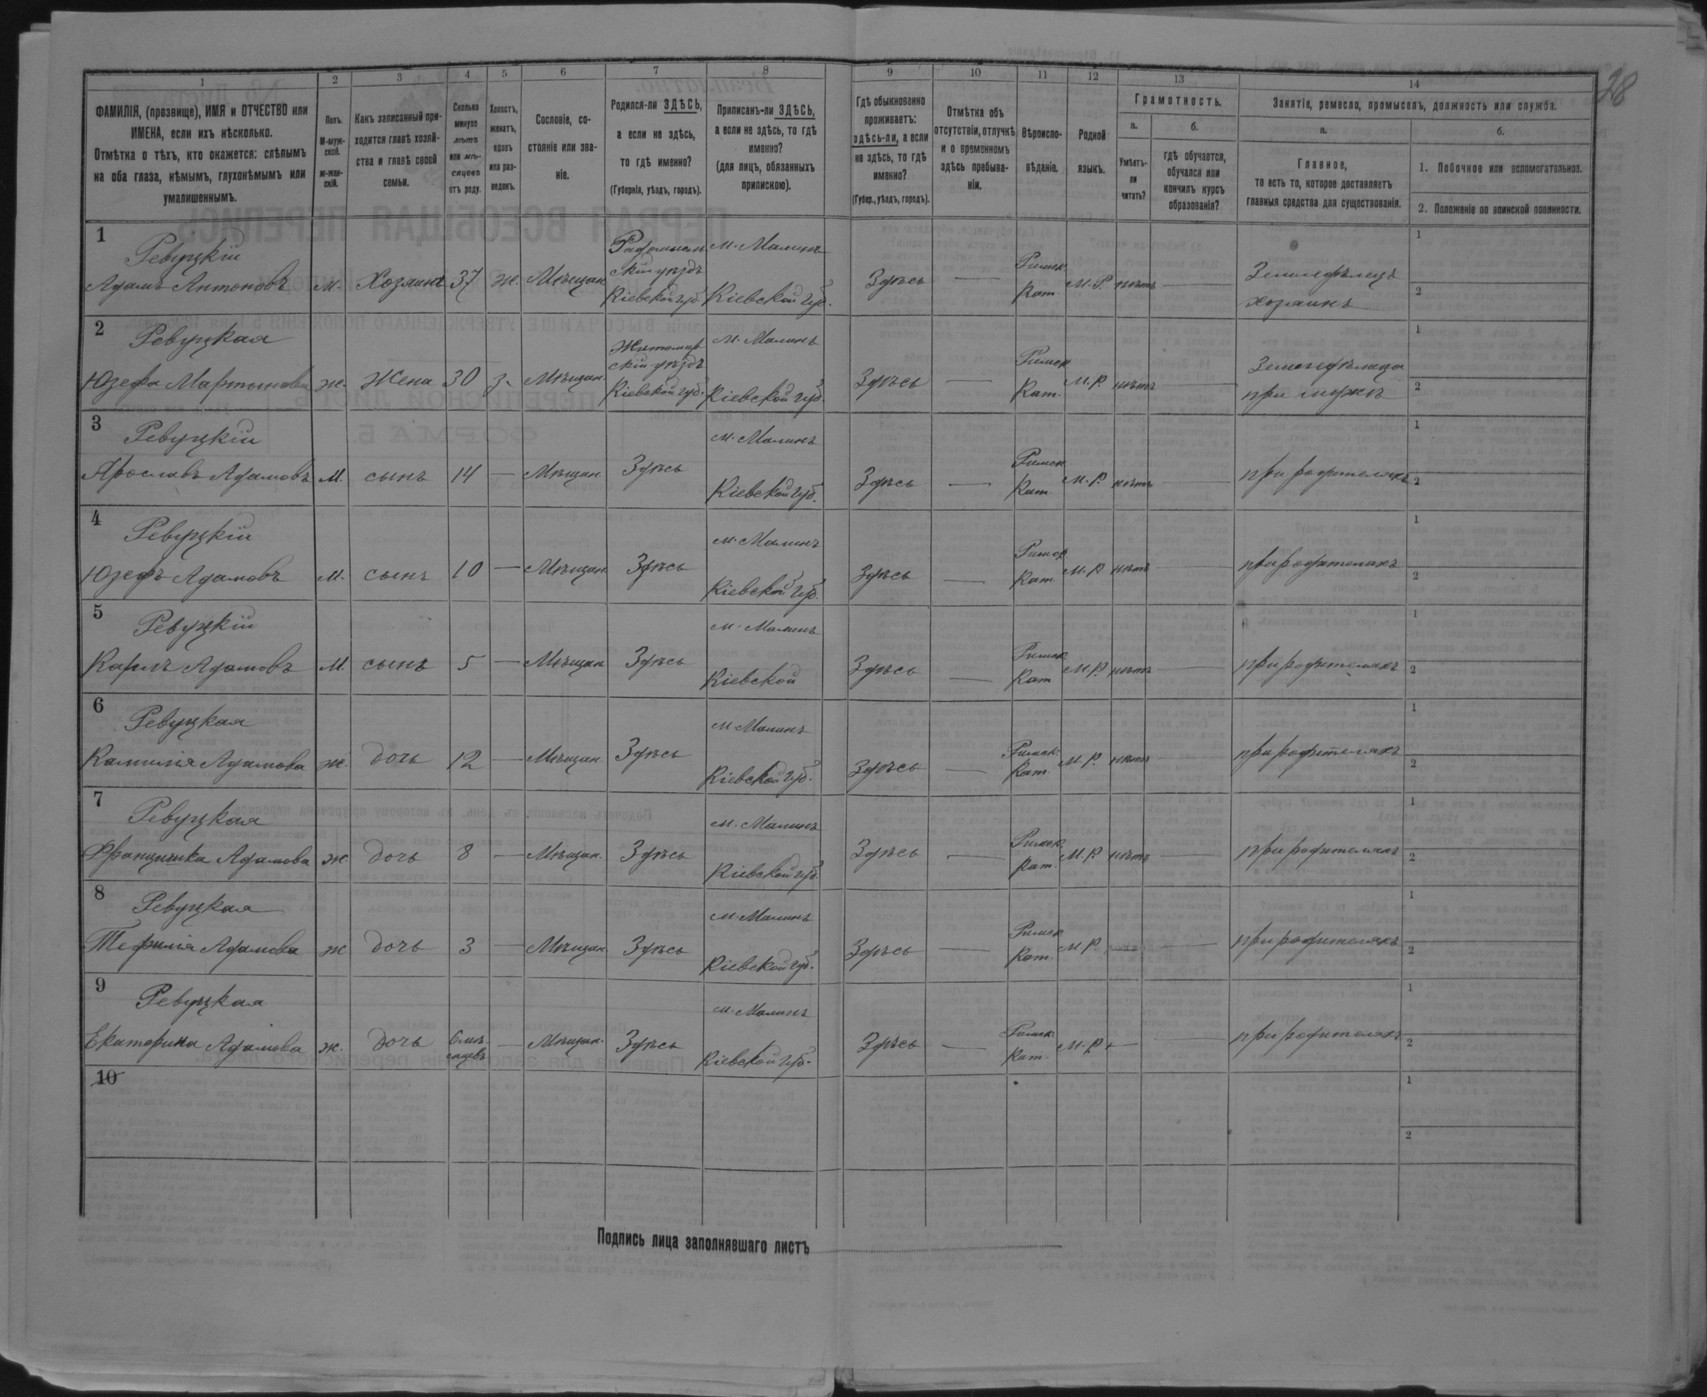 28
1 2 3 4 5 6 7 8 9 10 11 12 13 14
ФАМИЛІЯ, (прозвище), ИМЯ и ОТЧЕСТВО или
ИМЕНА, если ихъ нѣсколько.
Отмѣтка о тѣхъ, кто окажется: слѣпымъ
на оба глаза, нѣмымъ, глухонѣмымъ или
умалишеннымъ.
Полъ.
М-мужской.
ж-женскій.
Какъ записанный приходится главѣ хозяйства и главѣ своей
семьи.
Сколько
минуло
лѣтъ
или мѣсяцевъ
отъ роду.
Холостъ,
женатъ,
вдовъ
или разведенъ.
Сословіе, состояніе или званіе.
Родился-ли ЗДѢСЬ,
а если не здѣсь,
то гдѣ именно?
(Губернія, уѣздъ, городъ).
Приписанъ-ли ЗДѢСЬ,
а если не здѣсь, то гдѣ
именно?
(для лицъ, обязанныхъ
припискою).
Гдѣ обыкновенно
проживаетъ:
здѣсь-ли, а если
не здѣсь, то гдѣ
именно?
(Губер., уѣздъ, городъ).
Отмѣтка объ
отсутствіи, отлучкѣ
и о временномъ
здѣсь пребываніи.
Вѣроисповѣданіе.
Родной
языкъ.
Грамотность.
а.
Умѣетъ-ли
читать?
б.
гдѣ обучается,
обучался или
кончилъ курсъ
образованія?
Занятіе, ремесло, промыселъ, должность или служба.
а.
Главное,
то есть то, которое доставляетъ
главныя средства для существованія.
б.
1. Побочное или вспомогательное.
2. Положеніе по воинской повинности.
1
Ревуцкій
Адамъ Антоновъ м. Хозяинъ 37 ж. Мѣщан.
Радомысль
скій уѣздъ
Кіевской губ.
м. Малинъ
Кіевской губ.
Здѣсь — Римск. Кат. М. Р. нѣтъ —
Земледѣлецъ
хозяинъ
1
2
2
Ревуцкая
Юзефа Мартинова ж. Жена 30 з. Мѣщан.
Житомир
скій уѣздъ
Кіевской губ.
м. Малинъ
Кіевской губ.
Здѣсь — Римск. Кат. М. Р. нѣтъ —
при мужѣ
1
2
3
Ревуцкій
Ярославъ Адамовъ м. сынъ 14 — Мѣщан. Здѣсь
м. Малинъ
Кіевской губ.
Здѣсь — Римск. Кат. М. Р. нѣтъ — при родителяхъ
1
2
4
Ревуцкій
Юзефъ Адамовъ м. сынъ 10 — Мѣщан. Здѣсь
м. Малинъ
Кіевской губ.
Здѣсь — Римск. Кат. М. Р. нѣтъ — при родителяхъ
1
2
5
Ревуцкій
Карлъ Адамовъ м сынъ 5 — Мѣщан. Здѣсь
м. Малинъ
Кіевской
Здѣсь — Римск. Кат. М. Р. нѣтъ — при родителяхъ
1
2
6
Ревуцкая
Камилія Адамова ж. дочь 12 — Мѣщан. Здѣсь
м Малинъ
Кіевской губ.
Здѣсь — Римск. Кат. М. Р. нѣтъ — при родителяхъ
1
2
7
Ревуцкая
Францишка Адамова ж. дочь 8 — Мѣщан. Здѣсь
м. Малинъ
Кіевской губ.
Здѣсь — Римск. Кат. М. Р. нѣтъ — при родителяхъ
1
2
8
Ревуцкая
Тефилія Адамова ж дочь 3 — Мѣщан. Здѣсь
м Малинъ
Кіевской губ.
Здѣсь — Римск. Кат. М. Р. — при родителяхъ
1
2
9
Ревуцкая
Екатерина Адамова ж. дочь 6 мѣсяцевъ — Мѣщан. Здѣсь
м. Малинъ
Кіевской губ.
Здѣсь — Римск. Кат. М. Р. — — при родителяхъ
1
2
10
1
2
Подпись лица заполнявшаго листъ